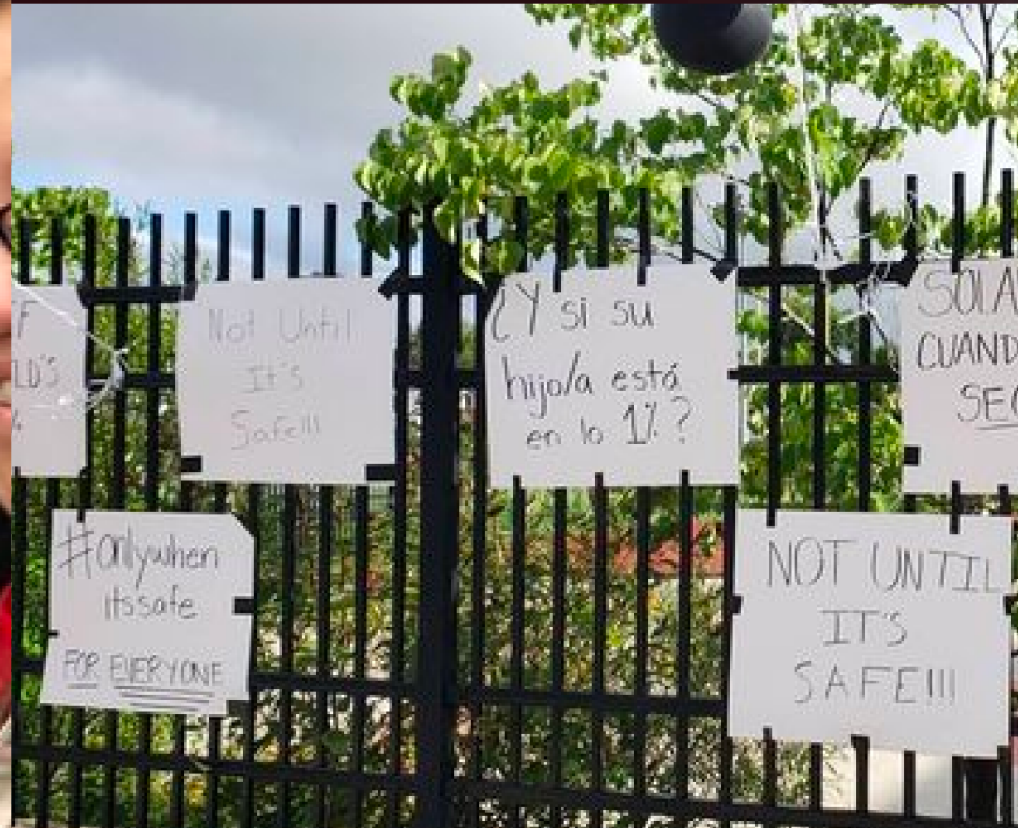 F
LD'S
%
Not Until
It's
Safe!!!
¿Y si su
hijo/a está
en lo 1%?
SOLA
CUAND
SEG
#onlywhen
itssafe
FOR EVERYONE
NOT UNTIL
IT'S
SAFE!!!